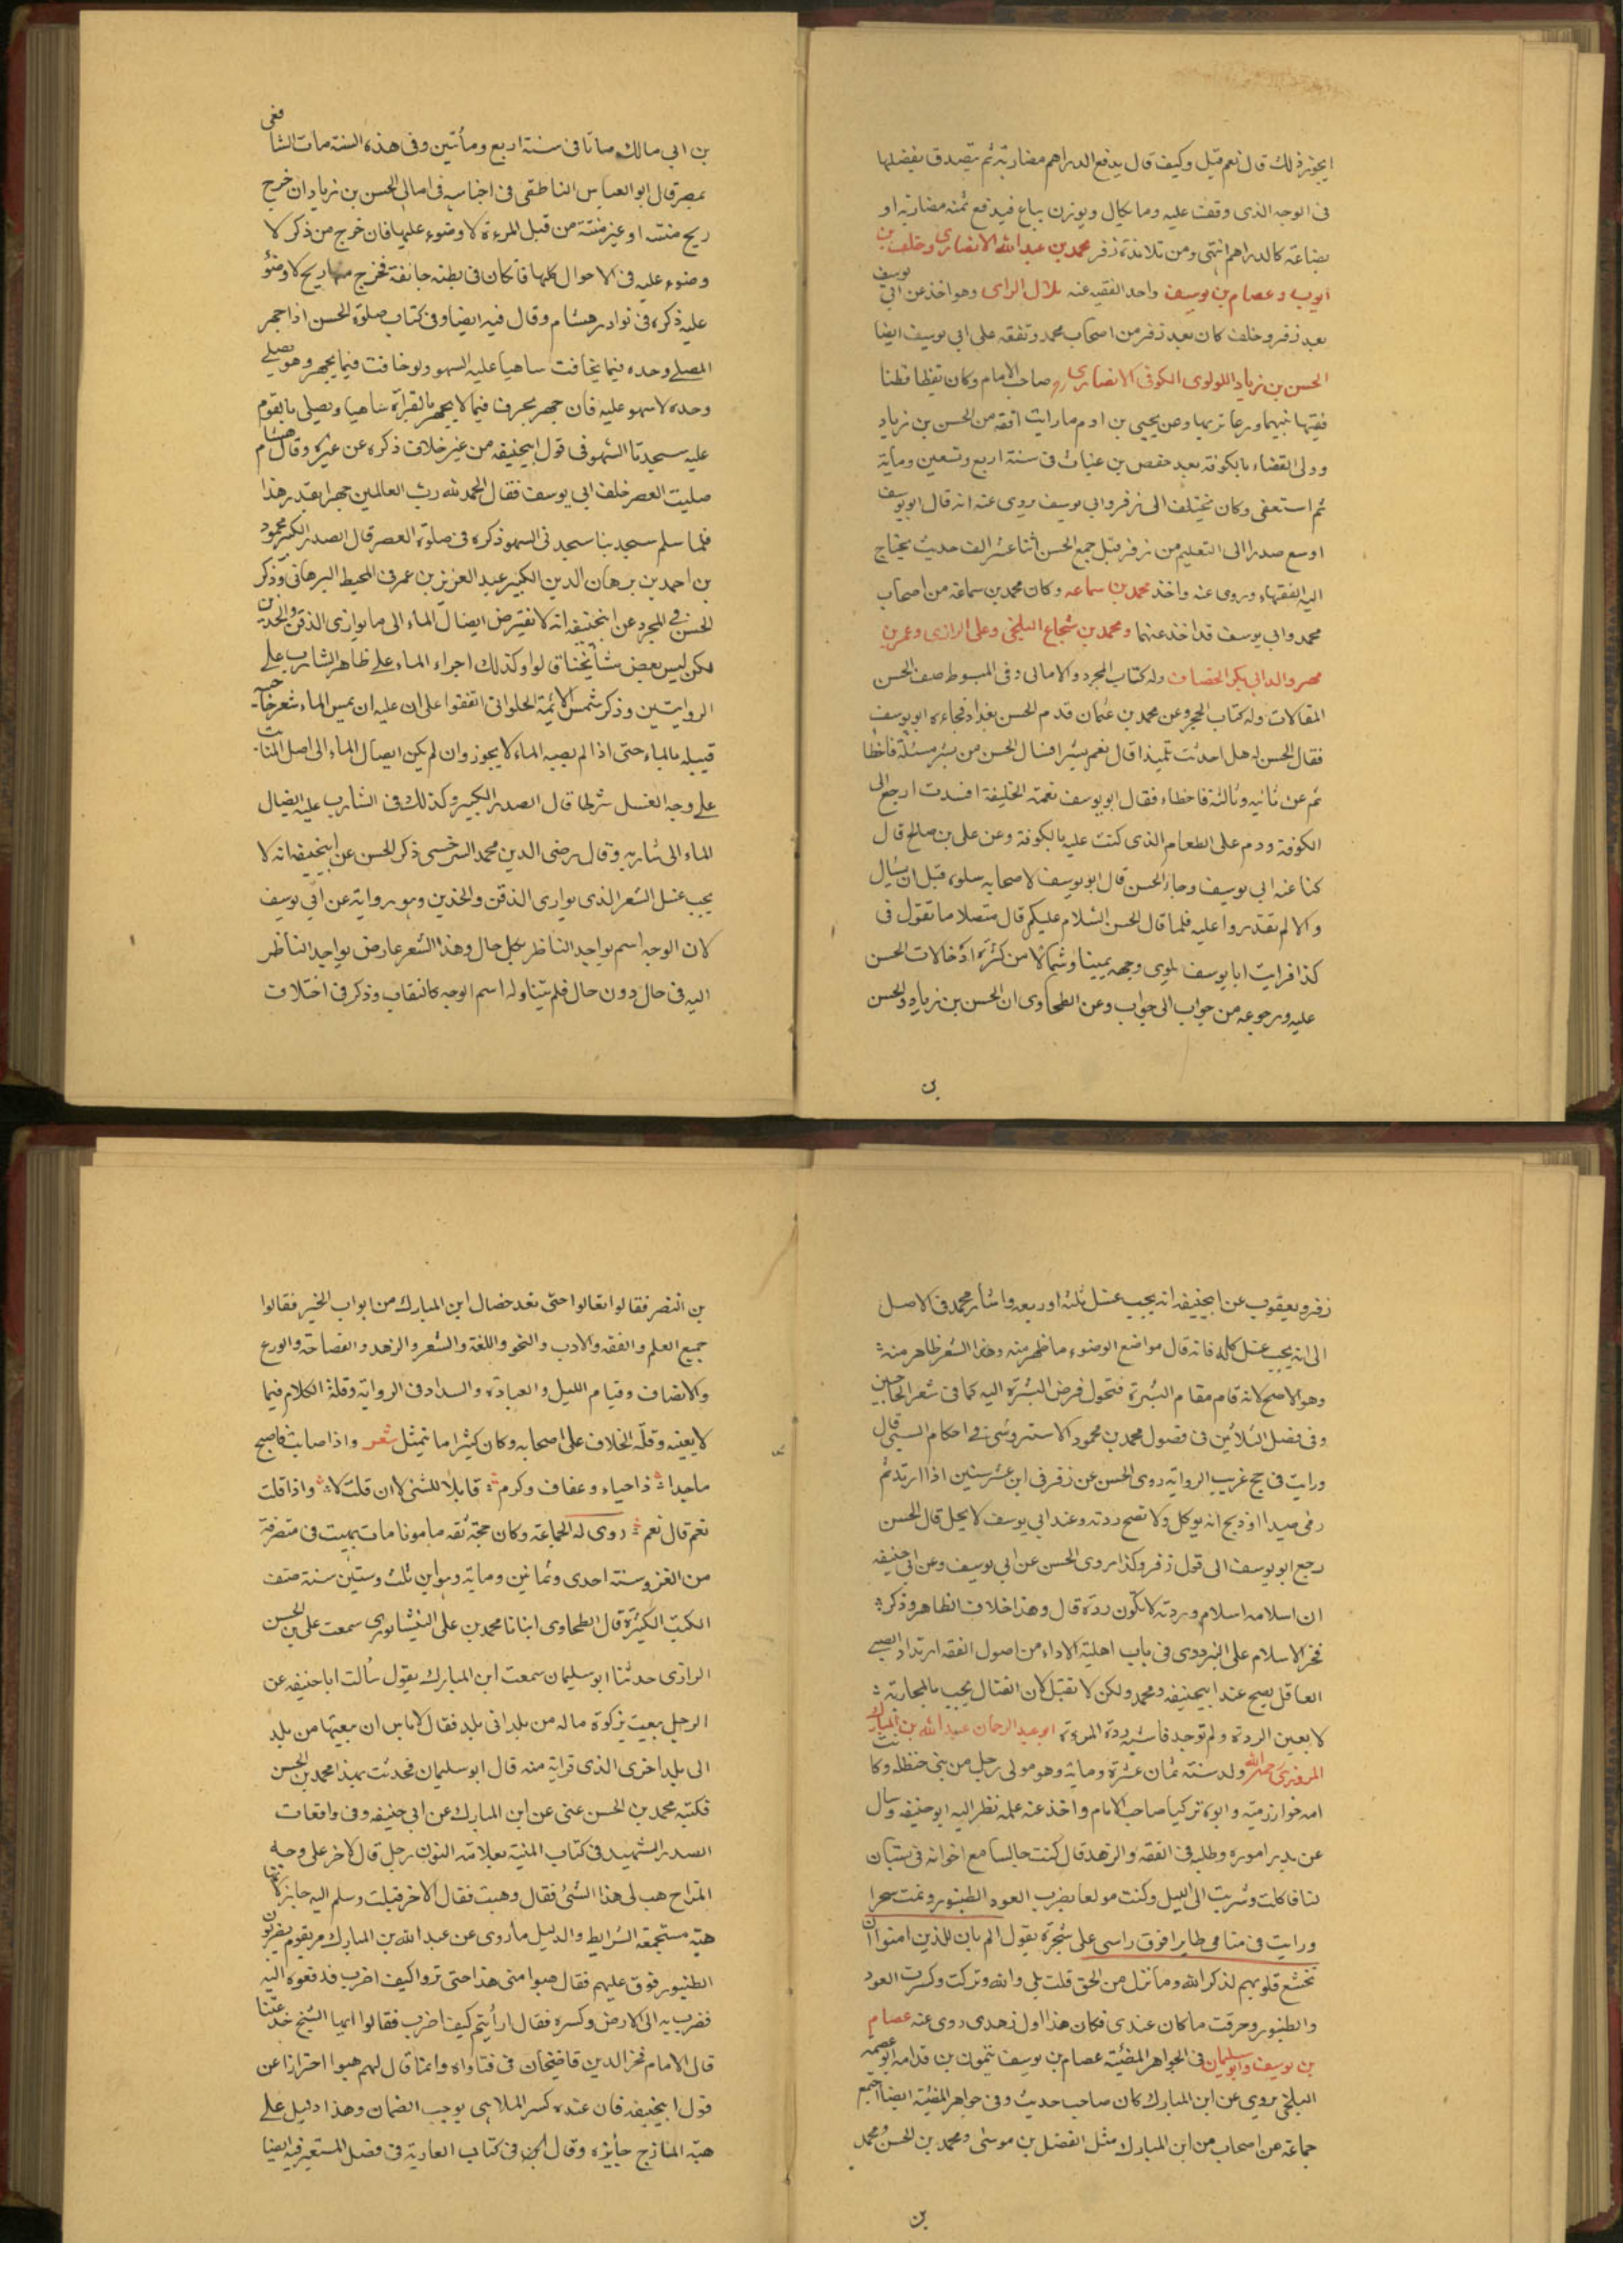 ايجوز ذلك قال نعم قيل وكيف قال يدفع الدراهم مضاربة ثم يتصدق بفضلها
فى الوجه الذى وقفت عليه وما يكال ويوزن يباع فيدفع ثمنه مضاربة او
بضاعة كالدراهم انتهى ومن تلامذة زفر محمد بن عبد الله الانصارى وخلف بن
ايوب وعصام بن يوسف واحد الفقيه عنه هلال الراى وهو اخذ عن ابى يوسف
بعد زفر وخلف كان بعد زفر من اصحاب محمد وتفقه على ابى يوسف ايضا
الحسن بن زياد اللولوى الكوفى الانصارى صاحب الامام وكان يقظا فطنا
فقيها نبيها ورعا نزيها وعن يحيى بن ادم ما رايت افقه من الحسن بن زياد
وولى القضاء بالكوفة بعد حفص بن غياث فى سنة اربع وتسعين وماية
ثم استعفى وكان يختلف الى زفر وابى يوسف روى عنه انه قال ابو يوسف
اوسع صدرا الى التعليم من زفر قيل جمع الحسن اثنا عشر الف حديث يحتاج
اليه الفقهاء وروى عنه واخذ محمد بن سماعه وكان محمد بن سماعة من اصحاب
محمد وابى يوسف قد اخذ عنهما ومحمد بن شجاع البلخى وعلى الرازى وعمر بن
مهر والد ابى بكر الخصاف وله كتاب المجرد والامالى وفى المبسوط صنف الحسن
المقالات وله كتاب المجرد وعن محمد بن عثمان قدم الحسن بغداد فجاءه ابو يوسف
فقال الحسن له هل احدثت تلميذا قال نعم بشرا فسال الحسن من بشر مسئلة فاخطا
ثم عن ثانيه وثالثة فاخطاء فقال ابو يوسف نعمة الخليفة افسدت ارجع الى
الكوفة ودم على الطعام الذى كنت عليه بالكوفة وعن على بن صالح قال
كنا عند ابى يوسف وجاء الحسن قال ابو يوسف لاصحابه سلوه قبل ان يسال
والا لم تقدروا عليه فلما قال الحسن السلام عليكم قال متصلا ما تقول فى
كذا فرايت ابا يوسف يلوى وجهه يمينا وشمالا من كثرة ادخالات الحسن
عليه ورجوعه من جواب الى جواب وعن الطحاوى ان الحسن بن زياد والحسن
بن
بن ابى مالك ماتا فى سنة اربع ومأتين وفى هذه السنة مات الشافعى
بمصر قال ابو العباس الناطقى فى اجناسه فى امالى الحسن بن زياد ان خرج
ريح منتنة او غير منتنة من قبل المرءة لا وضوء عليها فان خرج من ذكر لا
وضوء عليه فى الاحوال كلها فا كان فى بطنه جائفة فخرج منها ريح لا وضوء
عليه ذكره فى نوادر هشام وقال فيه ايضا وفى كتاب صلوة الحسن اذا جهر
المصلى وحده فيما يخافت ساهيا عليه السهو ولو خافت فيما يجهر وهو يصلى
وحده لا سهو عليه فان جهر بحرف فيما لا يجهر بالقرآة ساهيا ويصلى بالقوم
عليه سجدتا السهو فى قول ابيحنيفه من غير خلاف ذكره عن غيره وقال هشام
صليت العصر خلف ابى يوسف فقال الحمد لله رب العالمين جهرا بقدر هذا
فلما سلم سجد بنا سجدتى السهو ذكره فى صلوة العصر قال الصدر الكبير محمود
بن احمد بن برهان الدين الكبير عبد العزيز بن عمر فى المحيط البرهانى وذكر
الحسن فى المجرد عن ابيحنيفه انه لا نفترض ايصال الماء الى ما يوازى الذقن والخدين
لكن ليس بعض مشأيخنا قالوا وكذلك اجراء الماء على ظاهر الشارب على
الروايتين وذكر شمس الائمة الحلوانى اتفقوا على ان عليه ان يمس الماء شعر حاجبيه
قيبله بالماء حتى اذا لم يصبه الماء لا يجوز وان لم يكن ايصال الماء الى اصل المنابت
على وجه الغسل شرطا قال الصدر الكبير وكذلك فى الشارب عليه ايصال
الماء الى شاربه وقال رضى الدين محمد السرخسى ذكر الحسن عن ابيحنيفه انه لا
يجب غسل الشعر الذى يوارى الذقن والخدين وهو رواية عن ابى يوسف
لان الوجه اسم يواجه الناظر بكل حال وهذا الشعر عارض يواجه الناظر
اليه فى حال دون حال فلم يتناوله اسم الوجه كالنقاب وذكر فى اختلاف
زفر ويعقوب عن ابيحنيفه انه يجب غسل ثلثه او ربعه واشار محمد فى الاصل
الى انه يجب غسل كله فانه قال مواضع الوضوء ما ظهر منه وهذا الشعر ظاهر منه
وهو الاصح لانه قام مقام البشرة فتحول فرض البشرة اليه كما فى شعر الحاجبين
وفى فصل الثلاثين فى فصول محمد بن محمود الاستروشنى فى احكام السبى قال
ورايت فى ج غريب الرواية روى الحسن عن زفر فى ابن عشر سنين اذا ارتد ثم
رمى صيدا او ذبح انه يوكل ولا تصح ردته وعند ابى يوسف لا يحل قال الحسن
رجع ابو يوسف الى قول زفر وكذا روى الحسن عن ابى يوسف وعن ابى حنيفه
ان اسلامه اسلام وردته لا تكون ردة قال وهذا خلاف الظاهر وذكر
فخر الاسلام على البزدوى فى باب اهلية الاداء من اصول الفقه ارتداد الصبى
العاقل يصح عند ابيحنيفه ومحمد ولكن لا تقبل لان القتال يجب بالمحاربة
لا بعين الردة ولم توجد فاشبه ردة المرءة ابو عبد الرحمان عبد الله بن المبارك
المروزى رحمه الله ولد سنة ثمان عشرة وماية وهو مولى رجل من بنى حنظله وكانت
امه خوارزمية وابوه تركيا صاحب الامام واخذ عنه علمه نظر اليه ابو حنيفه وسال
عن بدء اموره وطلبه فى الفقه والزهد قال كنت جالسا مع اخوانه فى بستان
لنا فاكلت وشربت الى الليل وكنت مولعا بضرب العود الطنبور ونمت سحرا
ورايت فى منامى طايرا فوق راسى على شجرة يقول الم يان للذين امنوا ان
تخشع قلوبهم لذكر الله وما نزل من الحق قلت بلى والله وتركت وكسرت العود
والطنبور وحرقت ما كان عندى فكان هذا اول زهدى روى عنه عصام
بن يوسف وابو سليمان فى الجواهر المضيئة عصام بن يوسف بن ميمون بن قدامه ابو عصمة
البلخى يروى عن ابن المبارك كان صاحب حديث وفى جواهر المضيئة ايضا اجتمع
جماعة من اصحاب من ابن المبارك مثل الفضل بن موسى ومحمد بن الحسن ومحمد
بن
بن النضر فقالوا تعالوا حتى نعد خصال ابن المبارك من ابواب الخير فقالوا
جميع العلم والفقه والادب والنحو واللغة والشعر والزهد والفصاحة والورع
والانصاف وقيام الليل والعبادة والسداد فى الرواية وقلة الكلام فيما
لا يعينه وقلة الخلاف على اصحابه وكان كثيرا ما يتمثل شعر واذا صاحبت فاصحب
ماجدا ذا حياء وعفاف وكرم قايلا للشئ لا ان قلت لا واذا قلت
نعم قال نعم روى له الجماعة وكان حجة ثقه مامونا مات بهيت فى منصرفه
من الغزو سنة احدى وثمانين وماية وهو ابن ثلث وستين سنة صنف
الكتب الكثيرة قال الطحاوى انبانا محمد بن على النيشابورى سمعت على بن الحسن
الرازى حدثنا ابو سليمان سمعت ابن المبارك يقول سألت ابا حنيفه عن
الرجل يبعث بزكوة ماله من بلد الى بلد فقال لا باس ان يبعثها من بلد
الى بلد اخرى الذى قرابة منه قال ابو سليمان فحدثت بهذا محمد بن الحسن
فكتبه محمد بن الحسن عنى عن ابن المبارك عن ابى حنيفه وفى واقعات
الصدر الشهيد فى كتاب الهبة بعلامة النون رجل قال لاخر على وجه
المزاح هب لى هذا الشئ فقال وهبت فقال الاخر قبلت وسلم اليه جاز لانها
هبة مستجمعة الشرايط والدليل ما روى عن عبد الله بن المبارك مر بقوم يضربون
الطنبور فوقف عليهم فقال هبوا منى هذا حتى تروا كيف اضرب فدفعوه اليه
فضرب به الى الارض وكسره فقال ارأيتم كيف اضرب فقالوا ايها الشيخ خدعتنا
قال الامام فخر الدين قاضيخان فى فتاواه وانما قال لهم هبوا احترازا عن
قول ابيحنيفه فان عنده كسر الملاهى يوجب الضمان وهذا دليل على
هبة المازح جايزه وقال لكن فى كتاب العارية فى فصل المستعير فيه ايضا